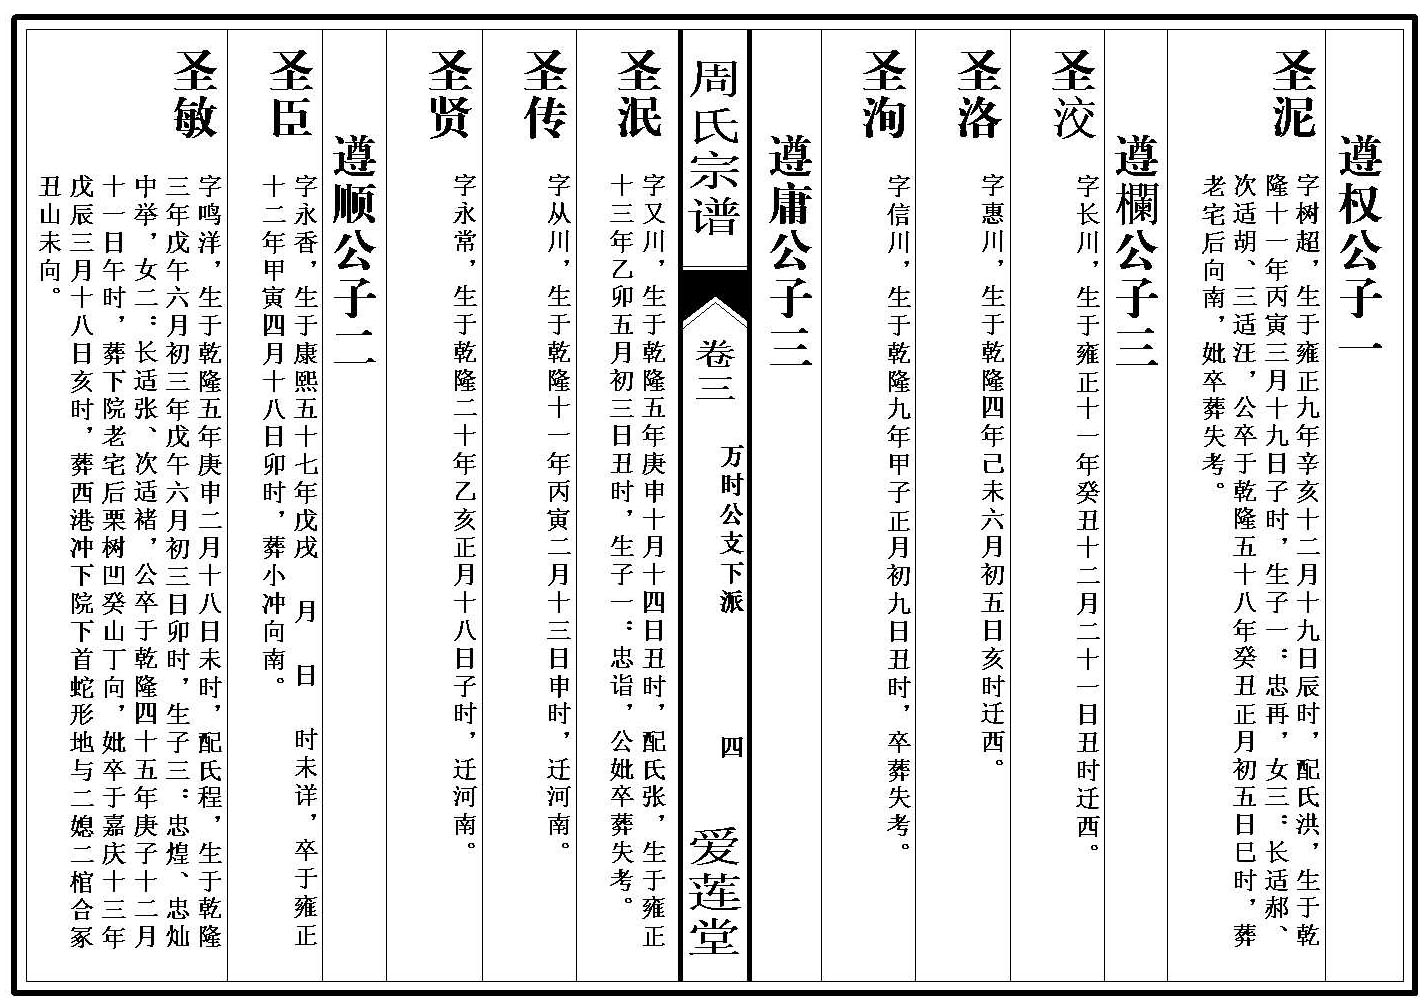 遵权公子一
圣泥
字树超，生于雍正九年辛亥十二月十九日辰时，配氏洪，生于乾
隆十一年丙寅三月十九日子时，生子一：忠再，女三：长适郝、
次适胡、三适汪，公卒于乾隆五十八年癸丑正月初五日巳时，葬
老宅后向南，妣卒葬失考。
遵欄公子三
圣洨
字长川，生于雍正十一年癸丑十二月二十一日丑时迁西。
圣洛
字惠川，生于乾隆四年己未六月初五日亥时迁西。
圣洵
字信川，生于乾隆九年甲子正月初九日丑时，卒葬失考。
遵庸公子三
周氏宗谱
卷三
万时公支下派
四
爱莲堂
圣泯
字又川，生于乾隆五年庚申十月十四日丑时，配氏张，生于雍正
十三年乙卯五月初三日丑时，生子一：忠诣，公妣卒葬失考。
圣传
字从川，生于乾隆十一年丙寅二月十三日申时，迁河南。
圣贤
字永常，生于乾隆二十年乙亥正月十八日子时，迁河南。
遵顺公子二
圣臣
字永香，生于康熙五十七年戊戌 月 日 时未详，卒于雍正
十二年甲寅四月十八日卯时，葬小冲向南。
圣敏
字鸣洋，生于乾隆五年庚申二月十八日未时，配氏程，生于乾隆
三年戊午六月初三年戊午六月初三日卯时，生子三：忠煌、忠灿
中举，女二：长适张、次适褚，公卒于乾隆四十五年庚子十二月
十一日午时，葬下院老宅后栗树凹癸山丁向，妣卒于嘉庆十三年
戊辰三月十八日亥时，葬西港冲下院下首蛇形地与二媳二棺合冢
丑山未向。